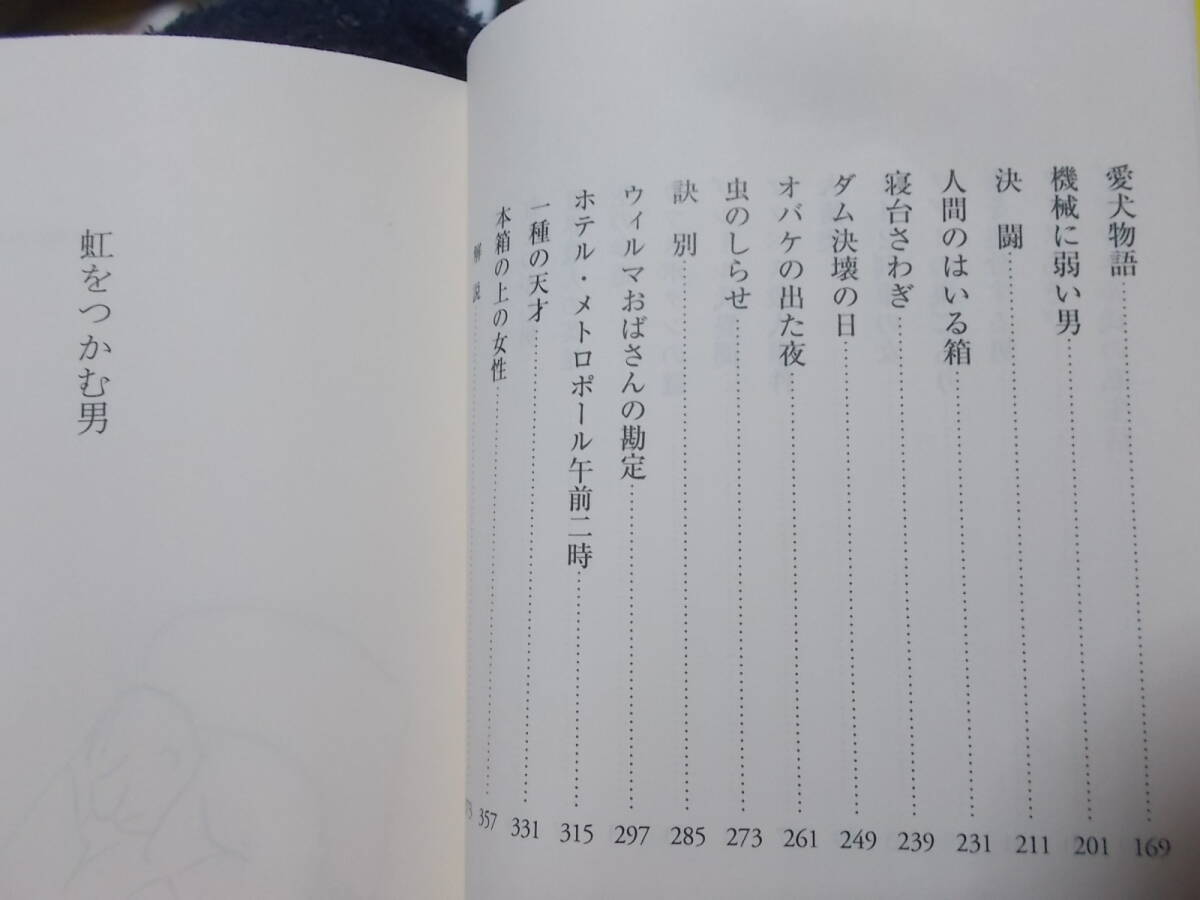 愛犬物語……………169
機械に弱い男……………201
決闘……………211
人間のはいる箱……………231
寝台さわぎ……………239
ダム決壊の日……………249
オバケの出た夜……………261
虫のしらせ……………273
訣別……………285
ウィルマおばさんの勘定……………297
ホテル・メトロポール午前二時……………315
一種の天才……………331
本箱の上の女性……………357
解説……………
虹をつかむ男